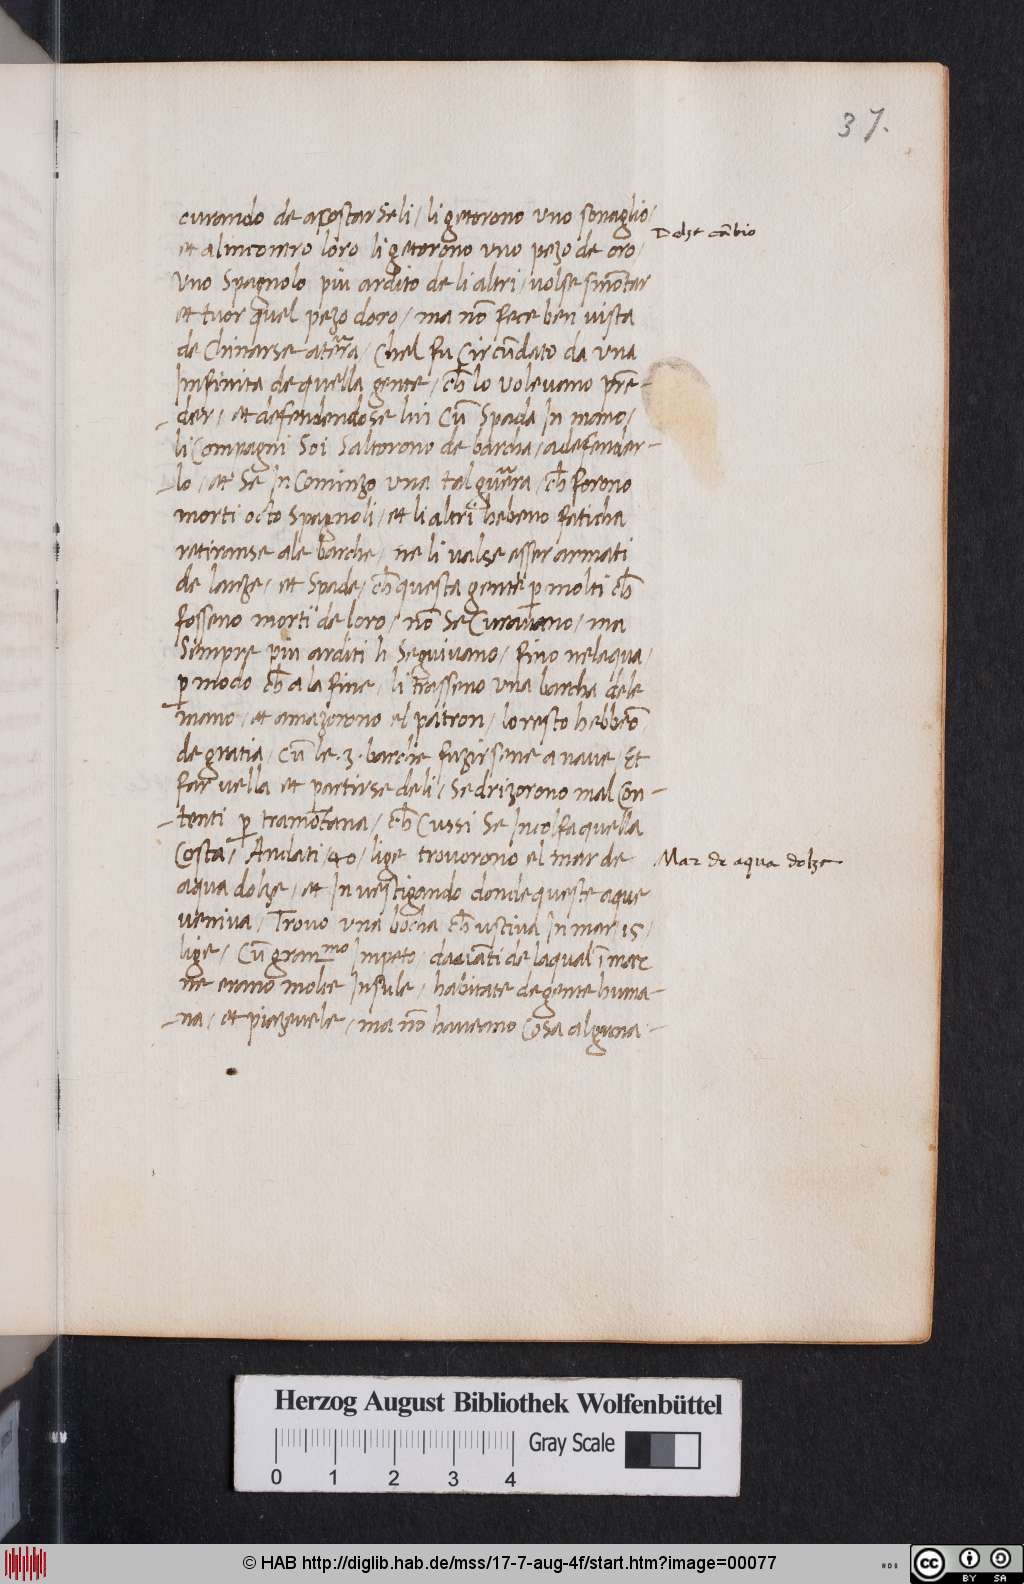 37.
curando de apostarseli / li getorono uno sonaglio /
Dolze cãbio
et alincontro loro li getorono uno pezo de oro /
Uno Spagnolo piu ardito de li altri / volse smõtar
et tuor quel pezo doro / ma nõ fece ben vista
de Chinarse a terra / Chel fu Circũdato da una
Infinita de quella gente / cħ lo volevano prẽ-
-der / et defendendose lui Cũ Spada In mano /
li Compagni Soi Saltorono de barcha / a defender-
-lo / et Se In Cominzo una tal guerra / cħ forono
morti octo Spagnoli / et li altri hebeno faticha
retirarse ale barche / ne li valse esser armati
de lanze / et Spade / cħ questa gente p molti cħ
fosseno morti de loro / nõ Se Curavano / ma
Sempre piu arditi li Seguivano / fino nelaqua /
p modo cħ a la fine / li trasseno una barcha dele
mano / et amazorono el patron / lo resto hebbeõ
de gratia / Cũ le .3. barche fuzirsene a nave / Et
far vella et partirse de li / Se drizorono mal Cõn-
-tenti p tramõtana / cħ Cussi Se Incolfa quella
Costa / Andati / 40 / lige trovorono el mar de
Mar de aqua dolze
aqua dolze / et Investigando donde queste aque
veniva / Trovo una bocha cħ usciva In mar 15 /
lige / Cũ gran.mo Impeto / davãti de laqual ĩ mar
ne erano molte Insule / habitate de gente huma-
-na / et piazevele / ma nõ haveano Cosa alguna -
Herzog August Bibliothek Wolfenbüttel
Gray Scale
0 1 2 3 4
© HAB http://diglib.hab.de/mss/17-7-aug-4f/start.htm?image=00077
cc BY SA